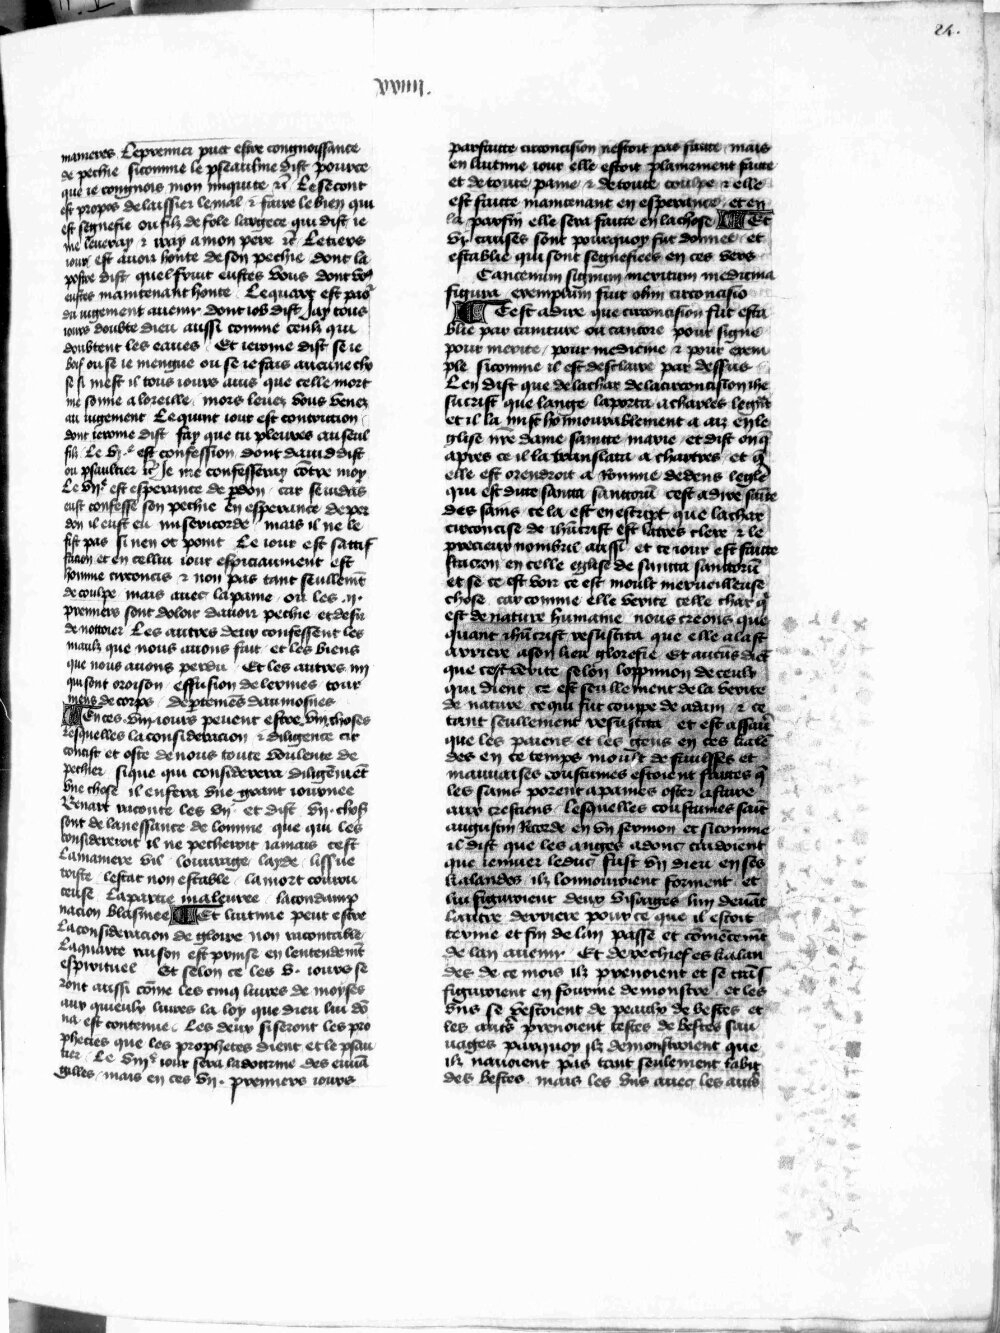 24.
xviiii.
manieres Le premier puet estre congnoissance
de pechie sicomme le pseaulme dist pource
que ie congnois mon iniquite ⁊c̃ Le second
est propos de laissier le mal ⁊ faire le bien qui
est segnefie ou filz de fole largece qui dist ie
me leueray ⁊ iray a mon pere ⁊c̃ Le tiers
iour est auoir honte de son pechie dont la
postre dist quel fruit eustes vous dont vꝰ
eustes maintenant honte Le quart est paor
du iugement auenir dont iob dist Jay tous
iours doubte dieu aussi comme ceulx qui
doubtent les eaues Et ierome dist se ie
boif ou se ie mengue ou se ie fais aucune cho
se si mest il tous iours auis que celle mort
me sonne a loreille mors leuez vous venez
au iugement Le quint iour est contriction
dont ierome dist fay que tu pleures au seul
filz Le vj.e est confession dont dauid dist
ou psaultier ⁊c̃ Je me confesseray cõtre moy
Le vij.e est esperance de ꝑdon car se iudas
eust confesse son pechie en esperance de par
don il eust eu misericorde mais il ne le
fist pas si nen ot point Le iour est satisf
facion et en cellui iour espiciaument est
homme circoncis ⁊ non pas tant seullemẽt
de coulpe mais auec la paine ou les .ij.
premiers sont doloir dauoir pechie et desir
de nottoier Les autres deux confessent les
maulx que nous auons fait et les biens
que nous auons perdu Et les autres iiij
qui sont oroison effusion de lermes tour
mens de corps departemẽs daumosnes
En ces viij iours peuent estre viij choses
lesquelles la consideration ⁊ diligence cir
concist et oste de nous toute voulente de
pechier si que qui considerera diligẽmẽt
vne chose il en fera vne grant iournee
Benart raconte les vij et dist vij. choses
sont de lanessance de lomme que qui les
considereroit il ne pecheroit iamais cest
la maniere vil louurage layde lissue
triste lestat non estable la mort courou
ceuse la partie maleuree la condamp
nacion blasmee Et luitme peut estre
la consideracion de gloire non racontable
La quarte raison est prinse en lentendemẽt
espirituel Et selon ce les v. iours se
ront aussi cõme les cinq liures de moyses
aux quieulx liures la loy que dieu lui dõ
na est contenue Les deux si seront les pro
phecies que les prophetes dient et le psau
tier Le viij.e iour sera la dotrine des euuã
gilles mais en ces vij. premiers iours
parfaitte circoncision nestoit pas faitte mais
en luitme iour elle estoit plainement faitte
et de toute paine ⁊ de toute coulpe ⁊ elle
est faitte maintenant en esperance et en
la parfin elle sera faitte en la chose Et
vj causes sont pourquoy fut donnee et
establie qui sont segnefiees en ces vers
Cauterium signum meritum medicina
figura exemplum fuit olim circoncisio
Cest a dire que circoncision fut esta
blie par cauture ou cautere pour signe
pour merite pour medicine ⁊ pour exem
ple sicomme il est desclaire par dessus
Len dist que de la char de la circoncision ihe
sucrist que lange laporta a charles legñt
et il la mist honnourablement a aiz en le
glise nr̃e dame sainte marie et dist on q̃
apres ce il la translata a chartres et q̃
elle est orendroit a romme dedens legl̃e
qui est dite santa santtoru͂ cest a dire saite
des sains ce la est en escript que la char
circoncise de ihũcrist est la tres clere ⁊ le
precieux nombril aussi et ce iour est faitte
stacion en celle eglise de santta santtorũ
et se ce est voir ce est moult merueilleuse
chose car comme elle verite celle char q̃
est de nature humaine nous creons que
quant ihũcrist resuscita que elle alast
arriere a son lieu glorefie Et aucũs dieñt
que cest verite selon loppinion de ceulx
qui dient ce est seullement de la verite
de nature ce qui fut couppe de adam ⁊ ce
tant seullement resuscita et est assauoir
que les paiens et les gens en ces kalẽ
des en ce temps moult de faulsses et
mauuaises coustumes estoient faites q̃
les sains porent a paines oster a faire
aux crestiens lesquelles coustumes saint
augustin recorde en vn sermon et sicomme
il dist que les anges adonc cuidoient
que ienuier leduc fust vn dieu en ses
kalandes ilz lonnouroient forment et
lui figuroient deux visages lun deuãt
lautre derriere pour ce que il estoit
terme et fin de lan passe et cõmẽcemẽt
de lan auenir Et de rechief es kalan
des de ce mois ilz prenoient et se trãs
figuroient en fourme de monstre et les
vns se vestoient de peaulx de bestes et
les autr̃s prenoient testes de bestes sau
uages par quoy ilz demonstroient que
ilz nauoient pas tant seulement labit
des bestes mais les vns auec les autr̃s